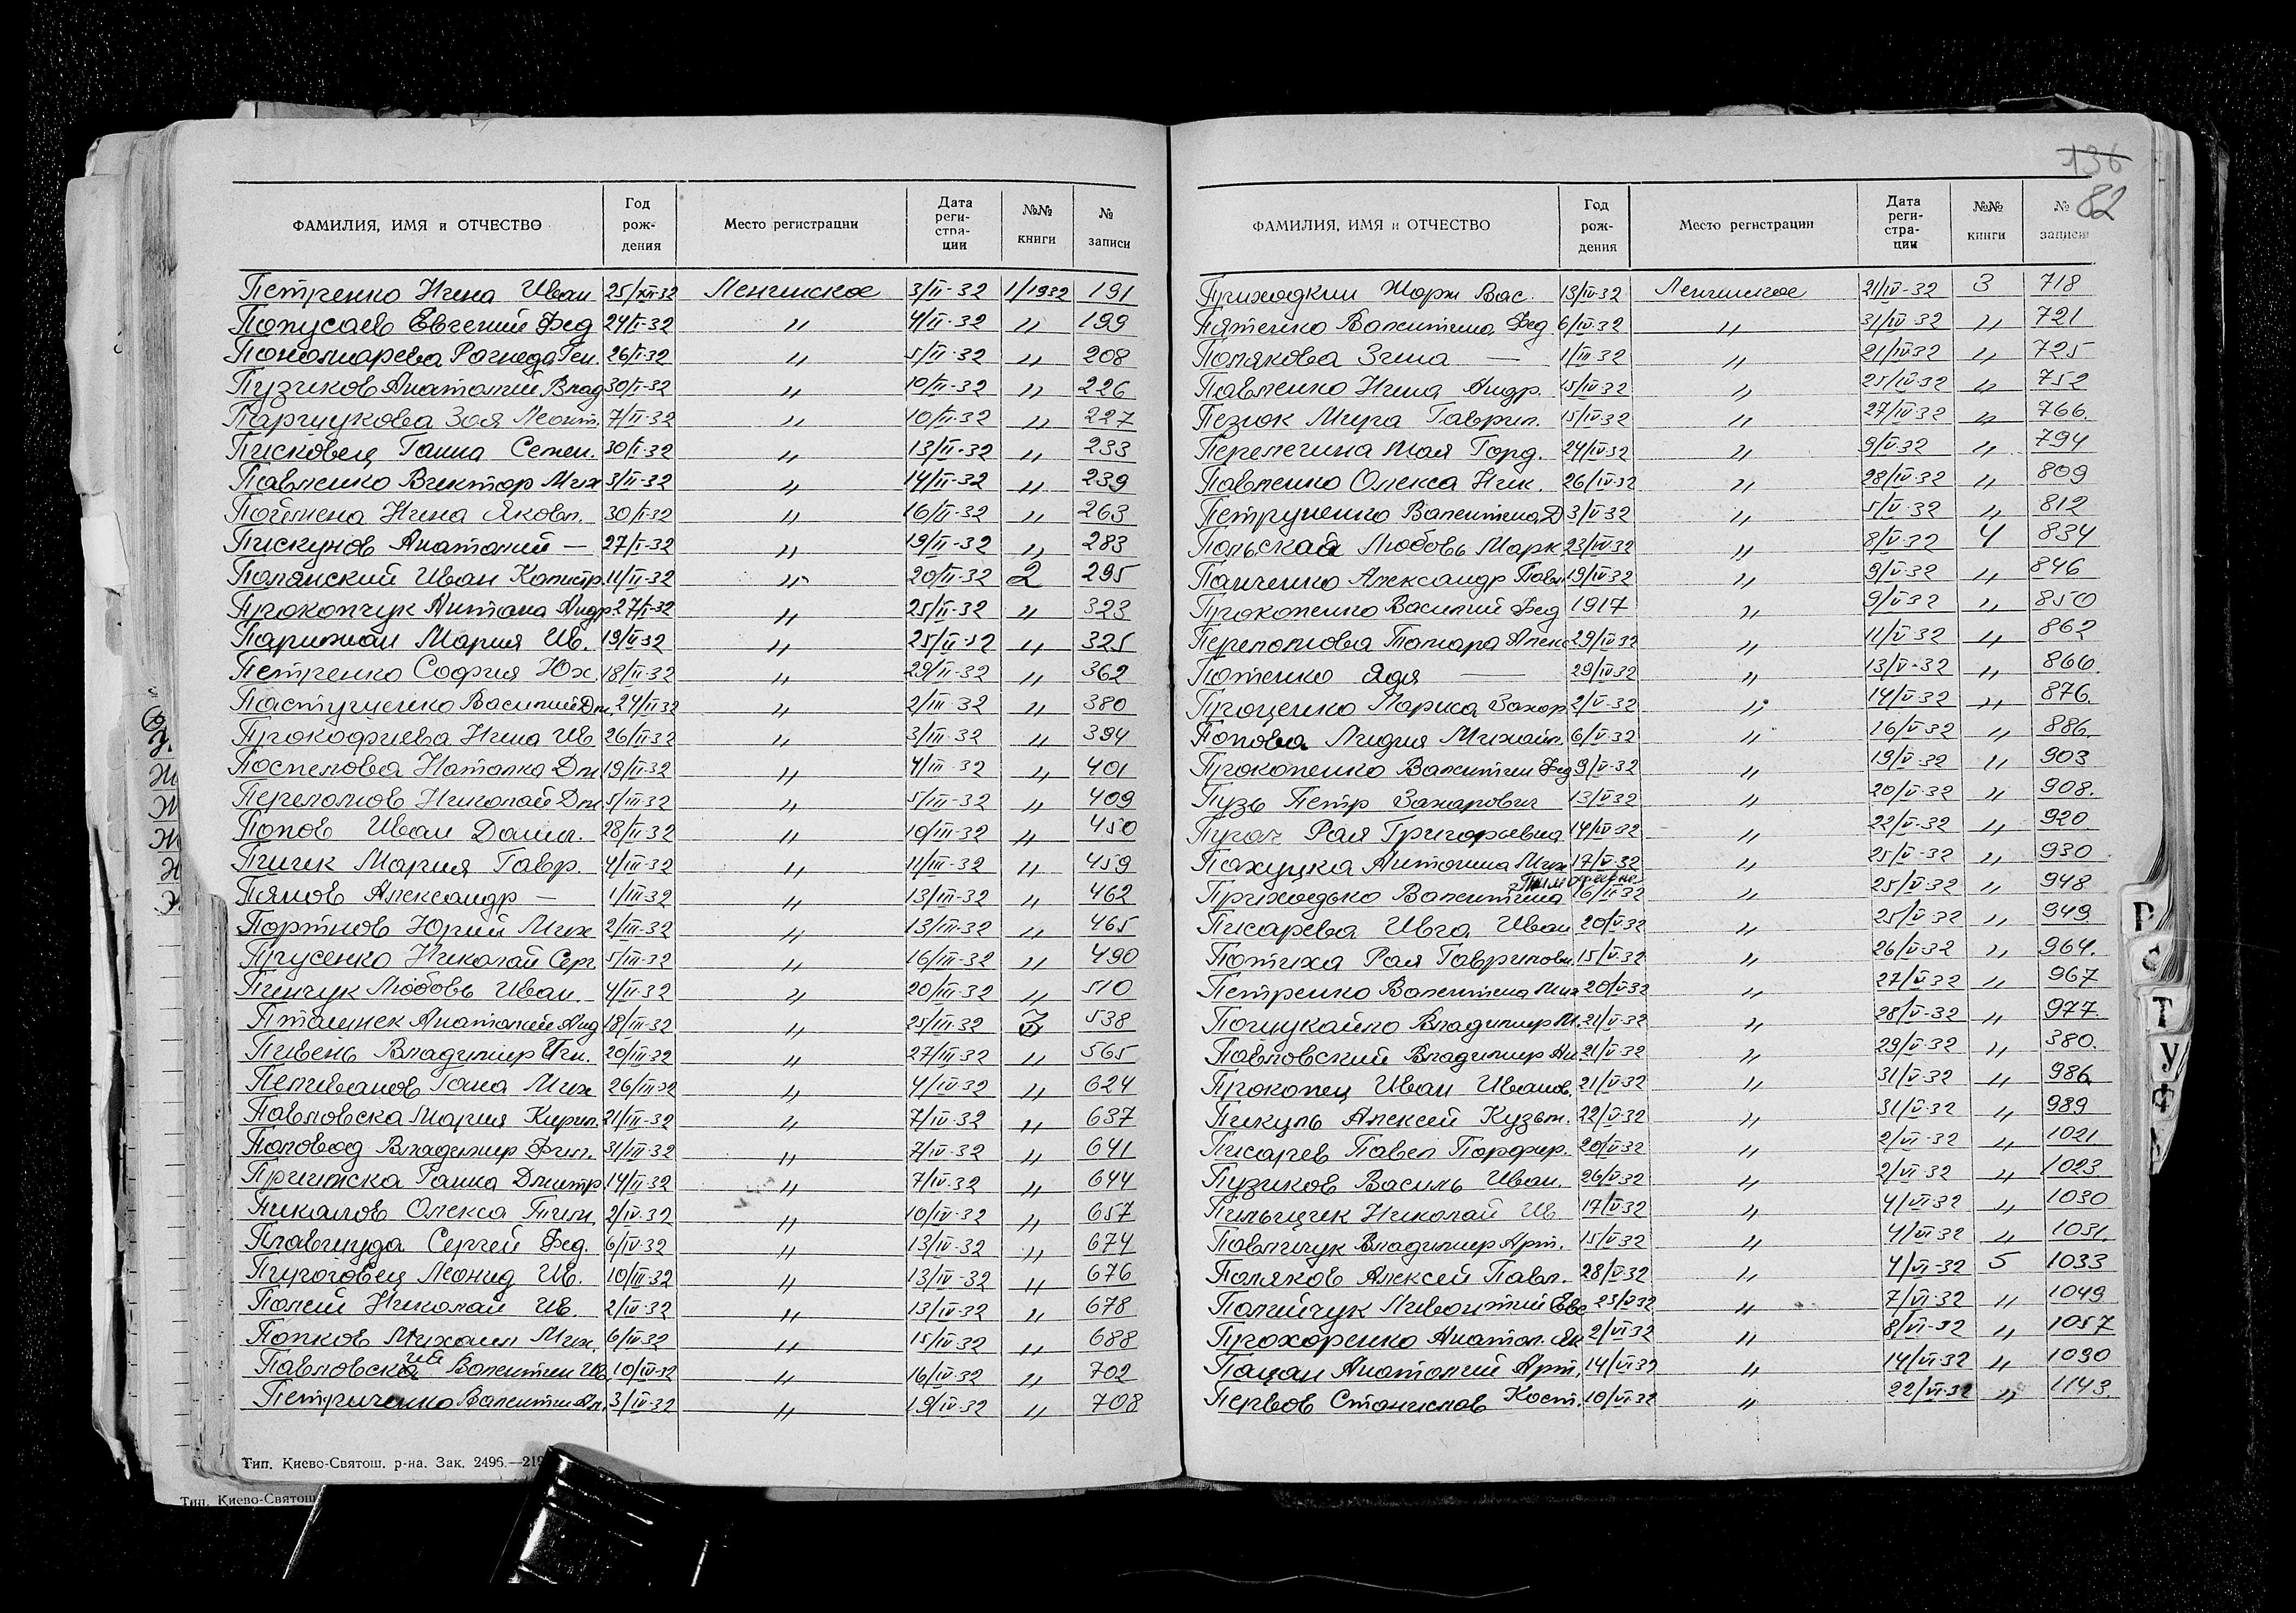 136
82
ФАМИЛИЯ, ИМЯ и ОТЧЕСТВО Год рож- дения Место регистрации Дата реги- стра- ции №№ книги № записи
Петренко Нина Иван 25/XII-32 Ленинское 3/II-32 1/1932 191
Попусаев Евгений Фед 24/I-32 〃 4/II-32 〃 199
Пономарева Рогнеда Ген. 26/I-32 〃 5/II-32 〃 208
Пузиков Анатолий Влад 30/I-32 〃 10/II-32 〃 226
Паршукова Зоя Леонт. 7/II-32 〃 10/II-32 〃 227
Писковец Ганна Семен. 30/I-32 〃 13/II-32 〃 233
Павленко Виктор Мих 3/II-32 〃 14/II-32 〃 239
Поймена Нина Яковл. 30/I-32 〃 16/II-32 〃 263
Пискунов Анатолий — 27/I-32 〃 19/II-32 〃 283
Полянский Иван 11/II-32 〃 20/II-32 2 295
Прокопчук Андр 27/I-32 〃 25/II-32 〃 323
Парижан Мария Ив. 19/II-32 〃 25/II-32 〃 325
Петренко София Юх. 18/II-32 〃 29/II-32 〃 362
Пастушенко Василий Дм. 24/II-32 〃 2/III-32 〃 380
Прокофиева Нина Ив 26/II-32 〃 3/III-32 〃 394
Поспелова Наталка Дм 19/II-32 〃 4/III-32 〃 401
Переломов Николай Дм 5/III-32 〃 5/III-32 〃 409
Попов Иван Данил. 28/II-32 〃 10/III-32 〃 450
Пичик Мария Гавр. 4/III-32 〃 11/III-32 〃 459
Пянов Александр — 1/III-32 〃 13/III-32 〃 462
Портнов Юрий Мих 2/III-32 〃 13/III-32 〃 465
Прусенко Николай Серг 5/III-32 〃 16/III-32 〃 490
Пинчук Любовь Иван. 4/II-32 〃 20/III-32 〃 510
Пташнек Анатолий Анд 18/III-32 〃 25/III-32 3 538
Пивень Владимир 20/III-32 〃 27/III-32 〃 565
Пеливанов Гана Мих 26/III-32 〃 4/IV-32 〃 624
Павловска Мария Кирил. 21/III-32 〃 7/IV-32 〃 637
Половод Владимир Фил. 31/III-32 〃 7/IV-32 〃 641
Ганна Дмитр 14/II-32 〃 7/IV-32 〃 644
Пикалов Олекса Тим. 2/IV-32 〃 10/IV-32 〃 657
Плавинуда Сергей Фед. 6/IV-32 〃 13/IV-32 〃 674
Пироговец Леонид Ив. 10/III-32 〃 13/IV-32 〃 676
Полей Николай Ив. 2/IV-32 〃 13/IV-32 〃 678
Попков Михаил Мих. 6/IV-32 〃 15/IV-32 〃 688
Валентин Ив. 10/IV-32 〃 16/IV-32 〃 702
Петриченко Валентин Ал. 3/IV-32 〃 19/IV-32 〃 708
Тип. Киево-Святош. р-на. Зак. 2496.—219
Тип. Киево-Святош
ФАМИЛИЯ, ИМЯ и ОТЧЕСТВО Год рож- дения Место регистрации Дата реги- стра- ции №№ книги № записи
Приходкин Жорж Вас. 13/IV-32 Ленинское 21/IV-32 3 718
Пятенко Валентина Фед 6/IV-32 〃 31/IV-32 〃 721
Полякова Зина — 1/III-32 〃 21/IV-32 〃 725
Павленко Нина Андр. 15/IV-32 〃 25/IV-32 〃 752
Пезюк Мира Гаврил. 15/IV-32 〃 27/IV-32 〃 766.
Перепечина Мая Горд. 24/IV-32 〃 9/V-32 〃 794
Павленко Олекса Ник. 26/IV-32 〃 28/IV-32 〃 809
Петрученко Валентина Д 3/V-32 〃 5/V-32 〃 812
Польская Любовь Марк 23/IV-32 〃 8/V-32 4 834
Панченко Александр Павл 19/IV-32 〃 9/V-32 〃 846
Прокопенко Василий Фед 1917 〃 9/V-32 〃 850
Переломова Тамара Алекс 29/IV-32 〃 11/V-32 〃 862
Потенко Ядя — 29/IV-32 〃 13/V-32 〃 866.
Проценко Лариса Захар 2/V-32 〃 14/V-32 〃 876.
Попова Лидия Михайл. 6/V-32 〃 16/V-32 〃 886.
Прокопенко Валентин Фед 9/V-32 〃 19/V-32 〃 903
Пузь Петр Захарович 13/V-32 〃 20/V-32 〃 908.
Пугач Рая Григорьевна 14/IV-32 〃 22/V-32 〃 920
Похуцка Антонина Мих 17/V-32 〃 25/V-32 〃 930
Приходько Валентина 16/III-32 〃 25/V-32 〃 948
Писарева Ивга Иван 20/V-32 〃 25/V-32 〃 949
Потиха Рая Гавриловн. 15/V-32 〃 26/V-32 〃 964.
Петренко Валентина Мих 20/V-32 〃 27/V-32 〃 967
Пошукайло Владимир М. 21/V-32 〃 28/V-32 〃 977
Павловский Владимир Ан 21/V-32 〃 29/V-32 〃 380.
Прокопец Иван Иванов. 21/V-32 〃 31/V-32 〃 986.
Пикуль Алексей Кузьм. 22/V-32 〃 31/V-32 〃 989
Писарев Павел Порфир. 20/V-32 〃 2/VI-32 〃 1021
Пузиков Василь Иван. 26/V-32 〃 2/VI-32 〃 1023
Пильщик Николай Ив 17/V-32 〃 4/VI-32 〃 1030
Павличук Владимир Арт. 15/V-32 〃 4/VI-32 〃 1031.
Поляков Алексей Павл. 28/V-32 〃 4/VI-32 5 1033
Полийчук 23/V-32 〃 7/VI-32 〃 1049
Прохоренко Анатол. Як 2/VI-32 〃 8/VI-32 〃 1057
Пацан Анатолий Арт. 14/VI-32 〃 14/VI-32 〃 1090
Первов Станислав Кост. 10/VI-32 〃 22/VI-32 〃 1143.
Р
С
Т
У
Ф